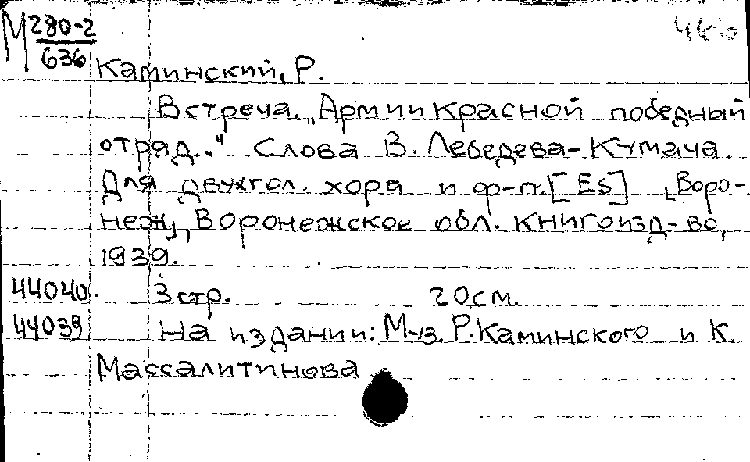 М 280-2
636
Каминский, Р.
Встреча. „Армии Красной победный
отряд.." Слова В. Лебедева-Кумача.
Для двухгол. хора и ф-п. [Es] [Воро-
неж], Воронежское обл. книгоизд-во,
1939.
44040. 3 стр. 20см.
44039 На издании: Муз. Р. Каминского и К.
Массалитинова